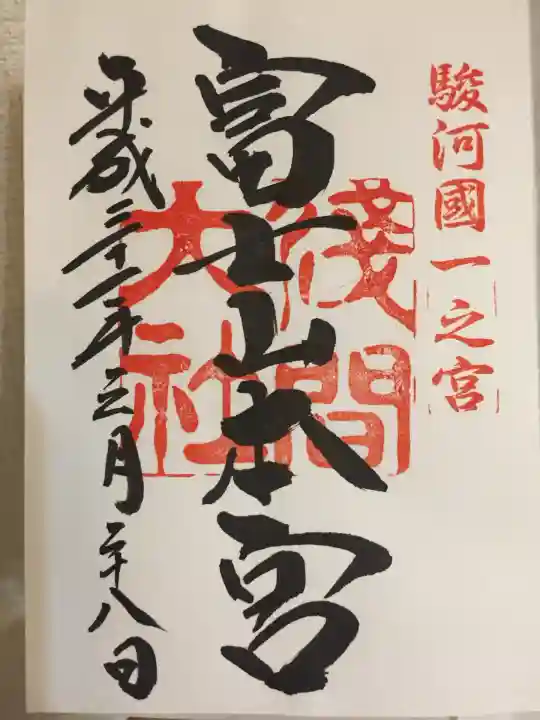 駿河國一之宮
富士山本宮
淺間大社
平成三十一年三月二十八日